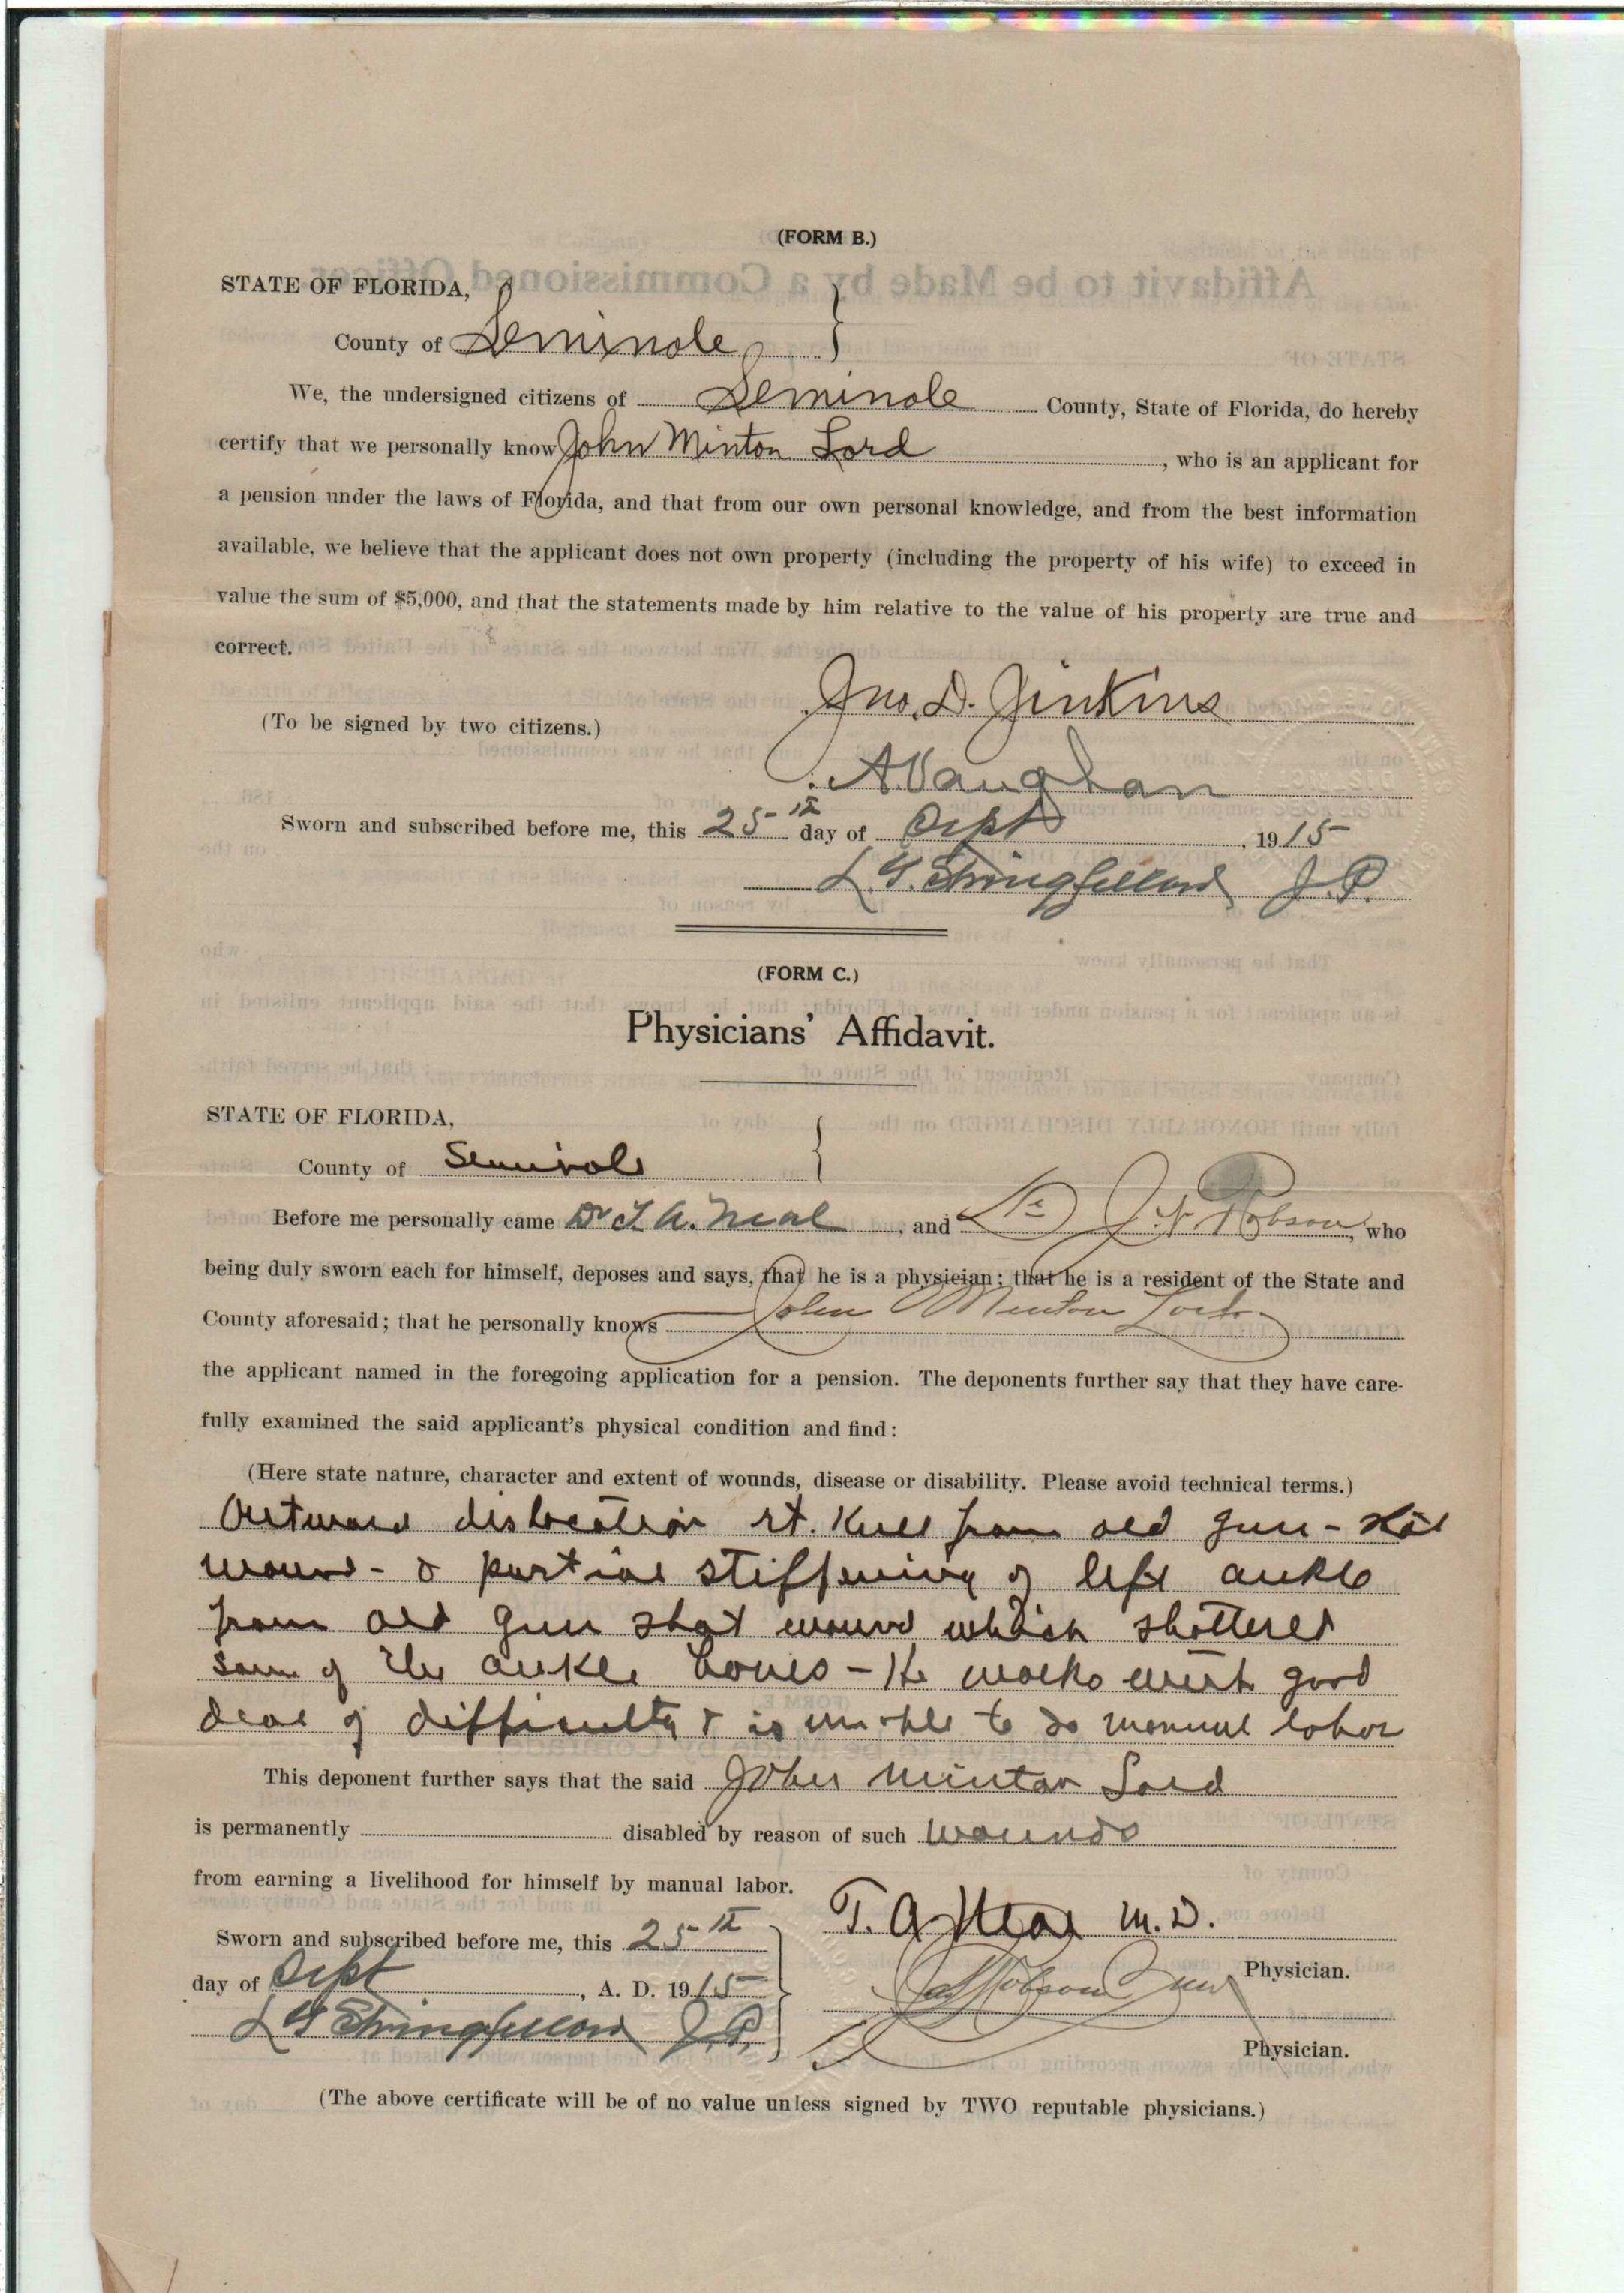 (FORM B.)
STATE OF FLORIDA,
County of Seminole
We, the undersigned citizens of Seminole County, State of Florida, do hereby
certify that we personally know John Minton Lord, who is an applicant for
a pension under the laws of Florida, and that from our own personal knowledge, and from the best information
available, we believe that the applicant does not own property (including the property of his wife) to exceed in
value the sum of $5,000, and that the statements made by him relative to the value of his property are true and
correct.
Jno. D. Jinkins
(To be signed by two citizens.)
A. Vaughan
Sworn and subscribed before me, this 25th day of Sept, 1915
L. G. Stringfellow J. P.
(FORM C.)
Physicians' Affidavit.
STATE OF FLORIDA,
County of Seminole
Before me personally came Dr T. A. Neal, and Dr J. N. Robson, who
being duly sworn each for himself, deposes and says, that he is a physician; that he is a resident of the State and
County aforesaid; that he personally knows John Minton Lord
the applicant named in the foregoing application for a pension. The deponents further say that they have care-
fully examined the said applicant's physical condition and find:
(Here state nature, character and extent of wounds, disease or disability. Please avoid technical terms.)
Outward dislocation rt. Knee from old gun-shot
wound - & partial stiffening of left ankle
from old gun shot wound which shattered
some of the ankle bones - He walks with good
deal of difficulty & is unable to do manual labor
This deponent further says that the said John Minton Lord
is permanently disabled by reason of such wounds
from earning a livelihood for himself by manual labor.
T. A. Neal M.D.
Sworn and subscribed before me, this 25th
Physician.
day of Sept, A. D. 1915
L G Stringfellow J.P.
Physician.
(The above certificate will be of no value unless signed by TWO reputable physicians.)